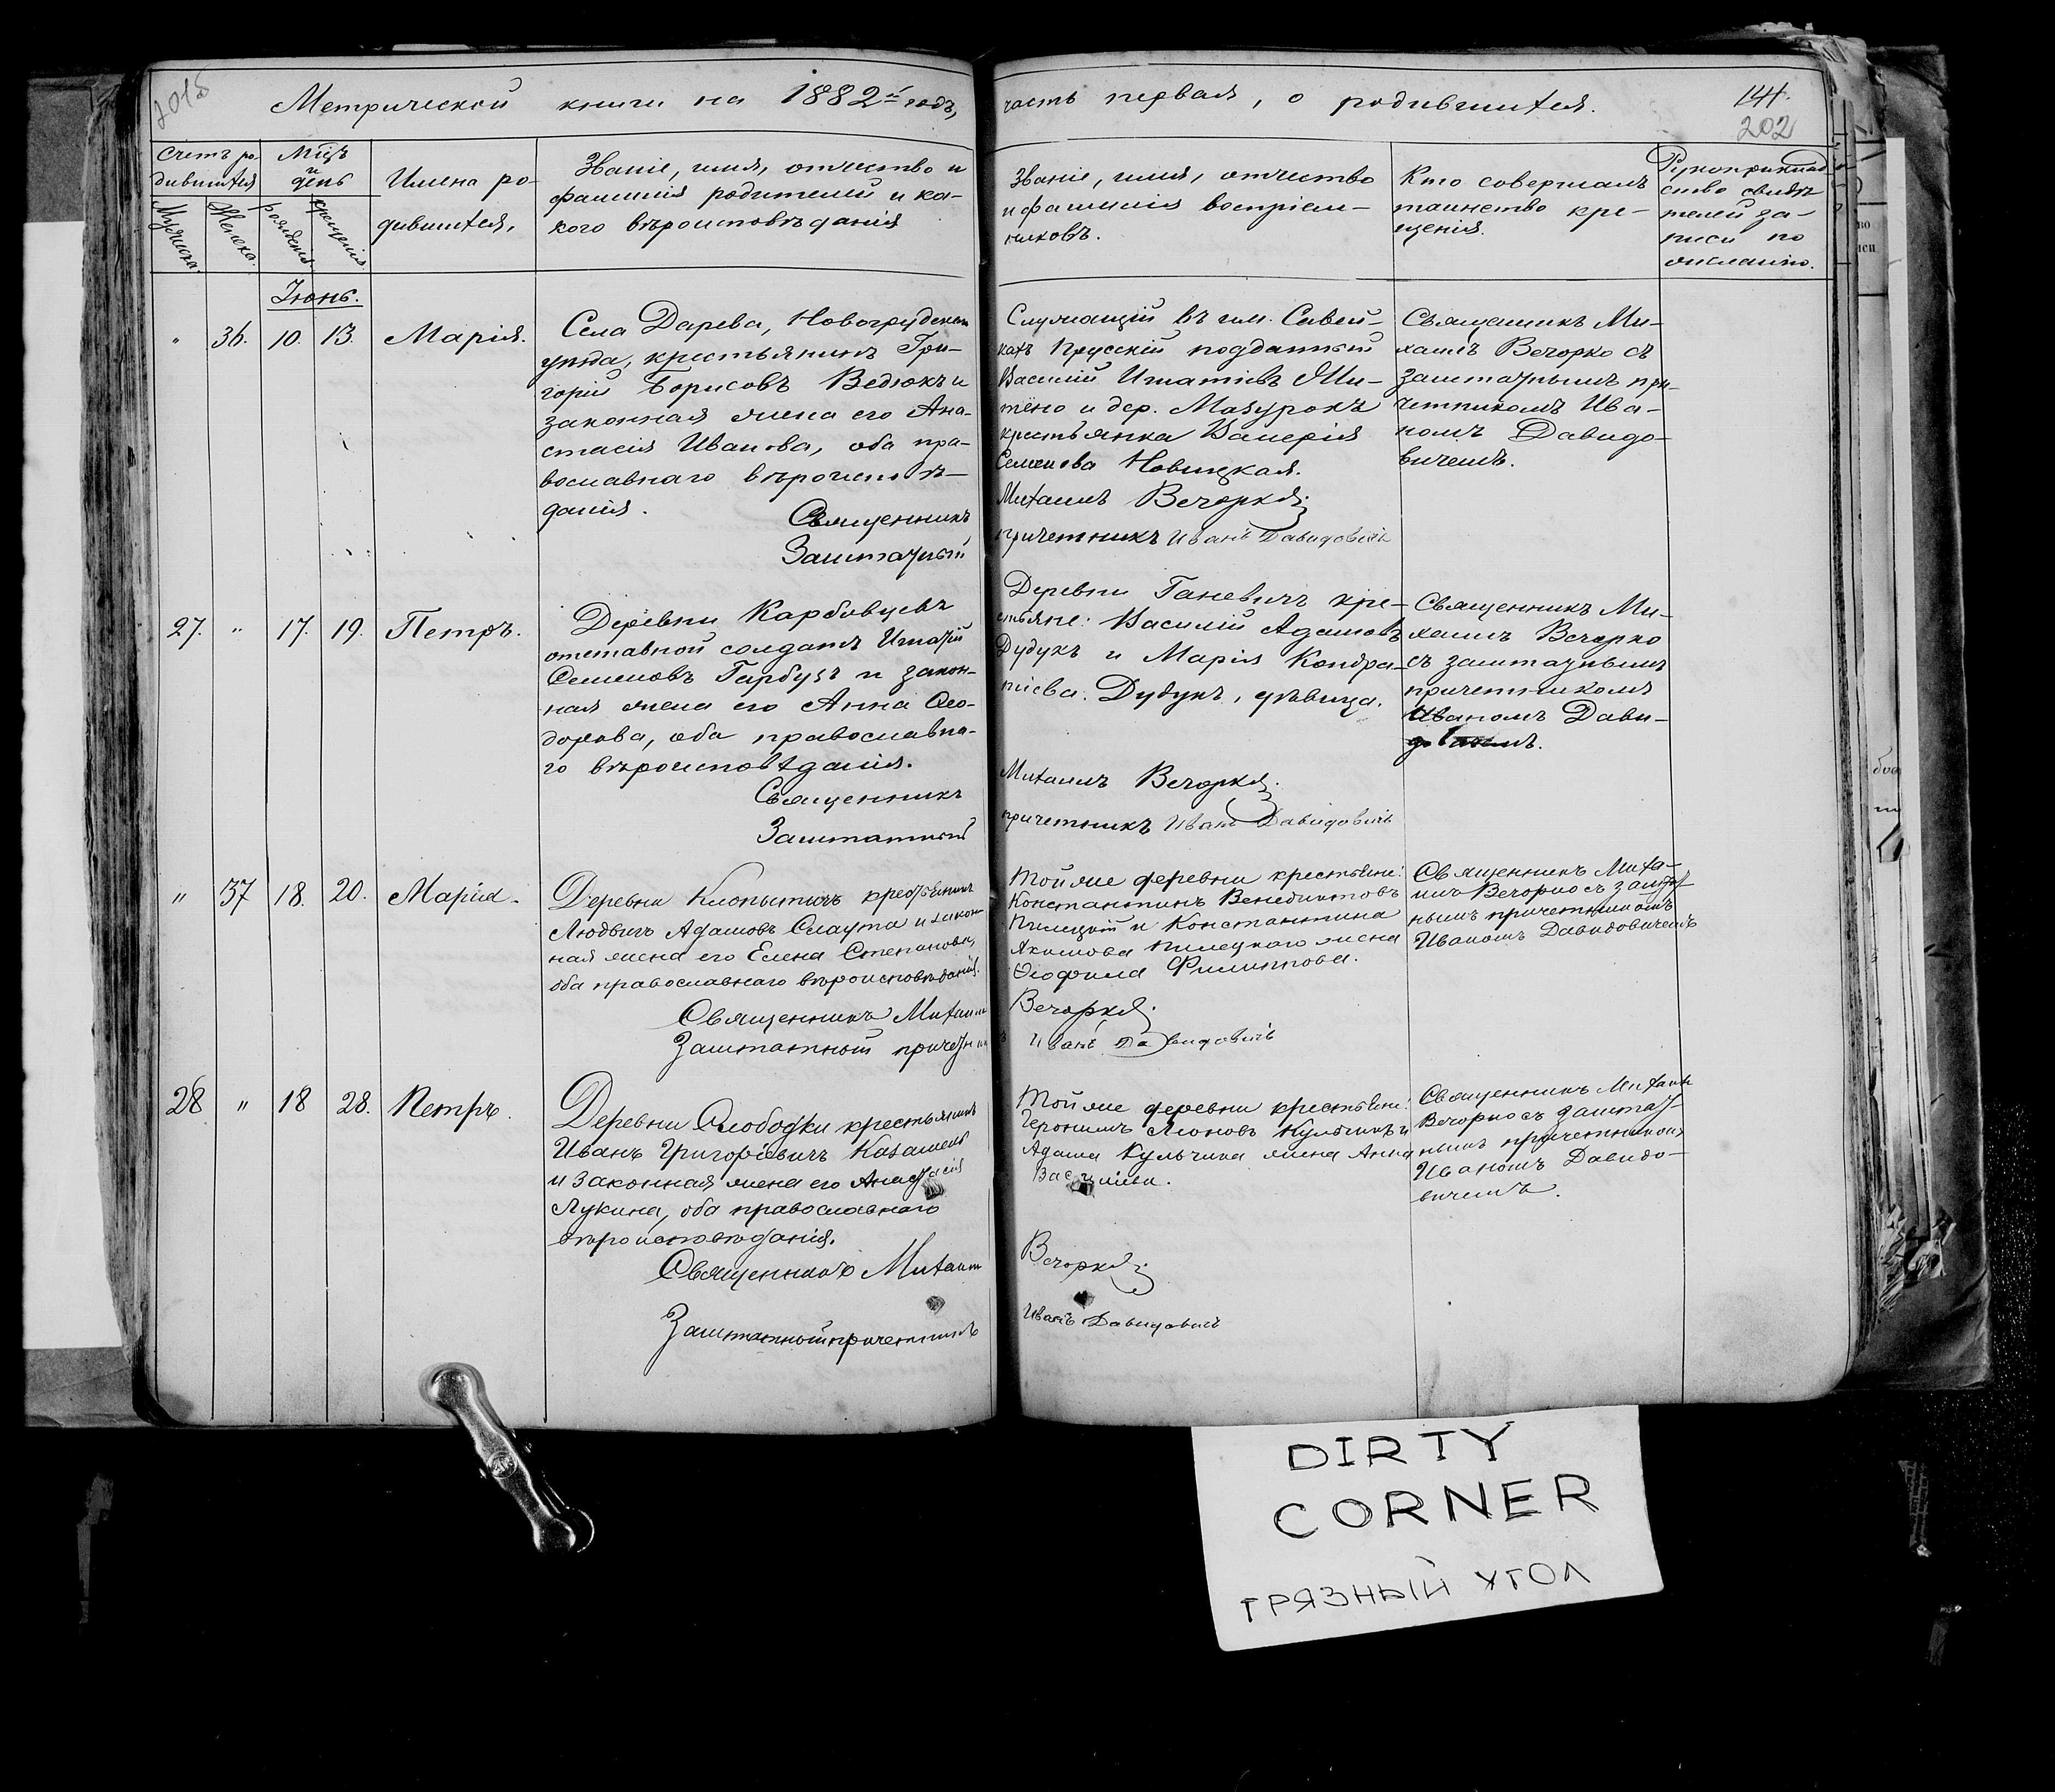 Метрической книги на 1882й годъ,
часть первая, о родившихся.
141.
202
Счетъ ро-
дившихся
Мцъ
и
день
Имена ро-
дившихся,
Званіе, имя, отчество и
фамилія родителей и ка-
кого вѣроисповѣданія
Мужска.
Женска.
рожденія.
крещенія.
Званіе, имя, отчество
и фамилія воспріем-
никовъ.
Кто совершалъ
таинство кре-
щенія.
Рукоприклад
ство свидѣ
телей за-
писи по
желанію.
Іюнь.
" 36. 10. 13. Марія.
Села Дарева, Новогрудскаго
уѣзда, крестьянинъ Гри-
горій Борисовъ Ведюкъ и
законная жена его Ана-
стасія Иванова, оба пра-
вославнаго вѣроисповѣ-
данія.
Священникъ
Заштатный
Служащій въ им. Савей-
кахъ Прусскій подданный
Василій Игнатіевъ
и дер. Мазурокъ
крестьянка Валерія
Семенова Новицкая.
Михаилъ Вечорко.
причетникъ Иванъ Давидовичъ
Священникъ Ми-
хаилъ Вечорко съ
заштатнымъ при-
четникомъ Ива-
номъ Давидо-
вичемъ.
27. " 17. 19. Петръ.
Деревни Карбовцевъ
отставной солдатъ Игнатій
Семеновъ Гарбузъ и закон-
ная жена его Анна Ѳео-
дорова, оба православна-
го вѣроисповѣданія.
Священникъ
Заштатный
Деревни Ганевичъ кре-
стьяне: Василій Адамовъ
Дудукъ и Марія Кондра-
тіева Дудукъ, дѣвица.
Михаилъ Вечорко.
причетникъ Иванъ Давидовичъ
Священникъ Ми-
хаилъ Вечорко
съ заштатнымъ
причетникомъ
Иваномъ Дави-
довичемъ.
" 37 18. 20. Марія.
Деревни Клопытичъ крестьянинъ
Людвигъ Адамовъ Слаута и закон
ная жена его Елена Степанова,
оба православнаго вѣроисповѣданія.
Священникъ Михаилъ
Заштатный причетник
Той же деревни крестьяне:
Константинъ Венедиктовъ
Пилецкій и Константина
Якимова Пилецкаго жена
Ѳеофила Филиппова.
Вечорко.
Иванъ Давидовичъ
Священникъ Миха-
илъ Вечорко съ заштат
нымъ причетникомъ
Иваномъ Давидовичемъ
28 " 18 28. Петръ.
Деревни Слободки крестьянинъ
Иванъ Григоріевичъ
и законная жена его Анастасія
Лукина, оба православнаго
вѣроисповѣданія.
Священникъ Михаилъ
Заштатный причетникъ
Той же деревни крестьяне:
Іеронимъ Леоновъ Кульчикъ и
Адама Кульчика жена Анна
Василіева.
Вечорко.
Иванъ Давидовичъ
Священникъ Михаилъ
Вечорко съ заштат-
нымъ причетникомъ
Иваномъ Давидо-
вичемъ.
DIRTY
CORNER
ГРЯЗНЫЙ УГОЛ